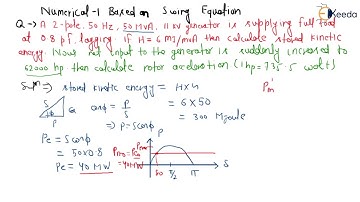 Numerical-1 Based on Swing Equation
Keeda
Q → A 2-pole, 50 Hz, 50 MVA, 11 kV generator is supplying full load
at 0.8 pf lagging if H = 6 MJ/MVA then calculate stored kinetic
energy. Now net input to the generator is suddenly increased to
62000 hp then calculate rotor acceleration (1hp = 735.5 watt)
Soln ⇒ stored kinetic energy = H×S
S
φ
P
Q
cosφ = P/S
= 6 × 50
= 300 MJoule
⇒ P = Scosφ
Pe = Scosφ
= 50×0.8
Pe = 40 MW
P
Pmax
Pm0 = Pe0
= 40MW
δ0
π/2
π
δ
Pm'